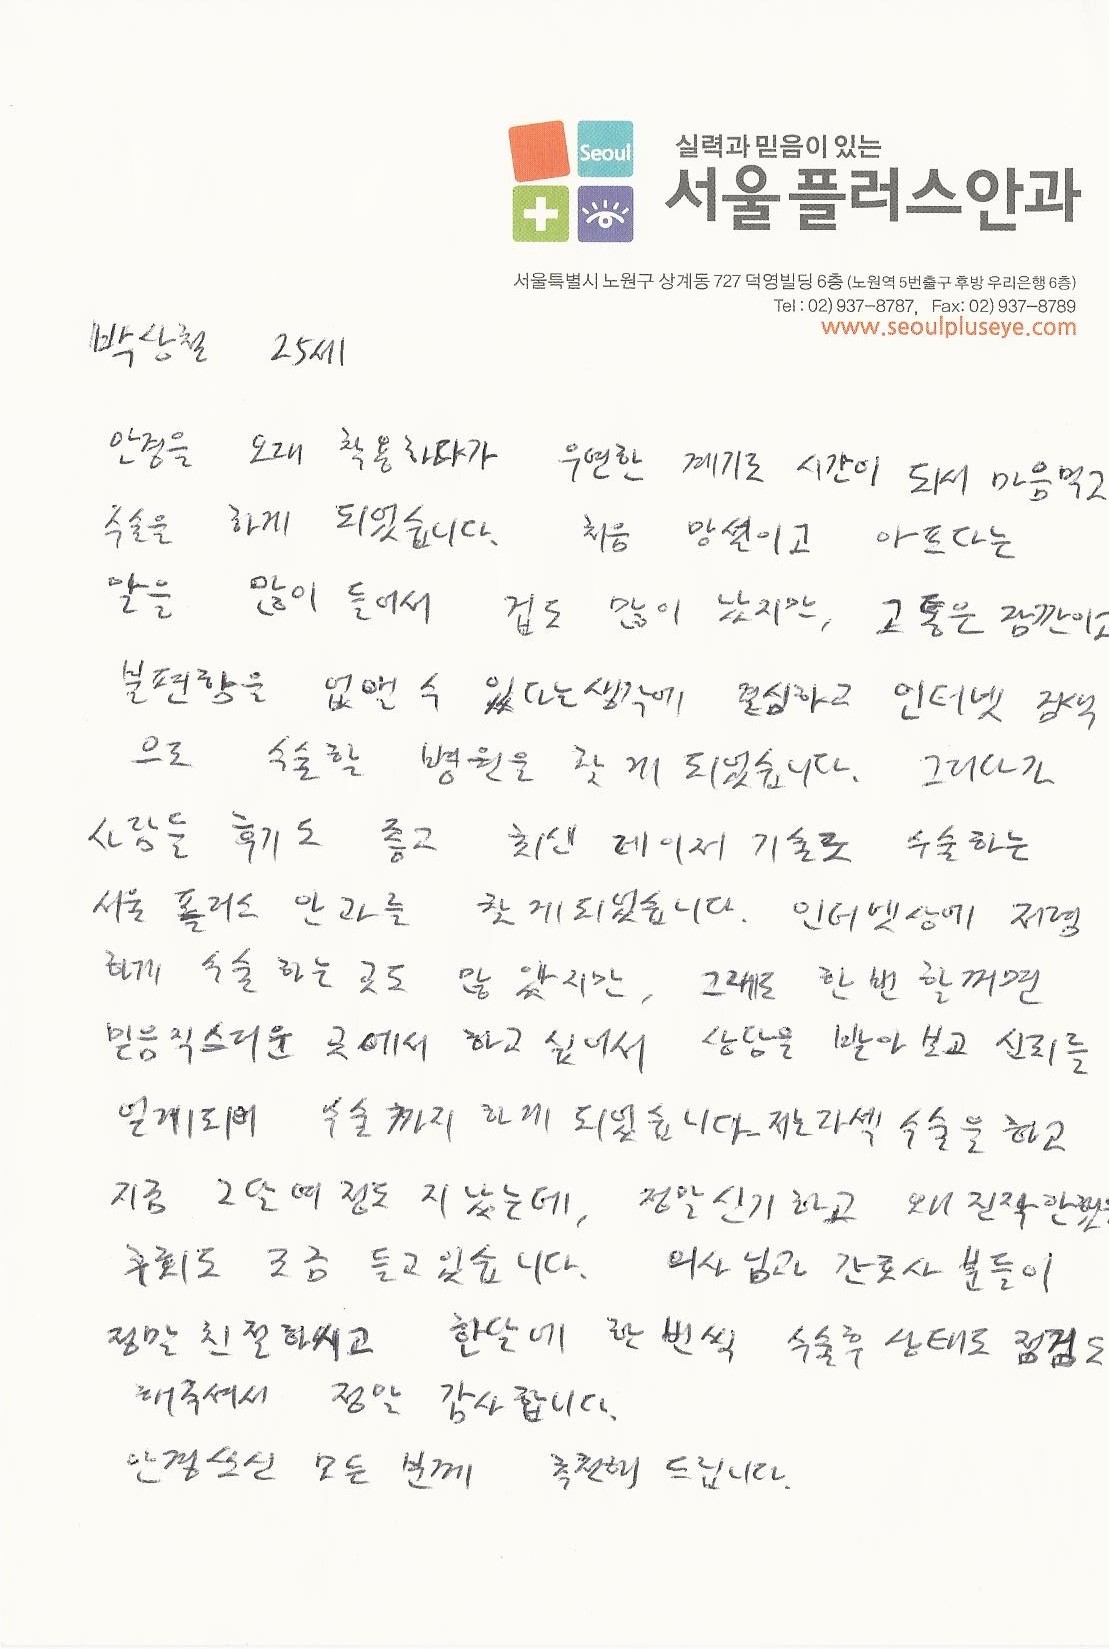 Seoul
실력과 믿음이 있는
서울플러스안과
서울특별시 노원구 상계동 727 덕영빌딩 6층 (노원역 5번출구 후방 우리은행 6층)
Tel : 02) 937-8787, Fax: 02) 937-8789
www.seoulpluseye.com
박상철 25세
안경을 오래 착용하다가 우연한 계기로 시간이 되서 마음먹고
수술을 하게 되었습니다. 처음 망설이고 아프다는
말을 많이 들어서 겁도 많이 났지만, 고통은 잠깐이고
불편함을 없앨 수 있다는생각에 결심하고 인터넷 검색
으로 수술할 병원을 찾게 되었습니다. 그러다가
사람들 후기도 좋고 최신 레이저 기술로 수술하는
서울 플러스 안과를 찾게되었습니다. 인터넷상에 저렴
하게 수술 하는 곳도 많았지만, 그래도 한번 할꺼면
믿음직스러운 곳에서 하고 싶어서 상담을 받아보고 신뢰를
얻게되어 수술까지 하게 되었습니다. 저는 라섹 수술을 하고
지금 2달여 정도 지났는데, 정말신기하고 왜 진작안했
후회도 조금 들고있습니다. 의사님과 간호사 분들이
정말 친절하시고 한달에 한 번씩 수술후 상태도 점검도
해주셔서 정말 감사합니다.
안경쓰신 모든 분께 추천해 드립니다.